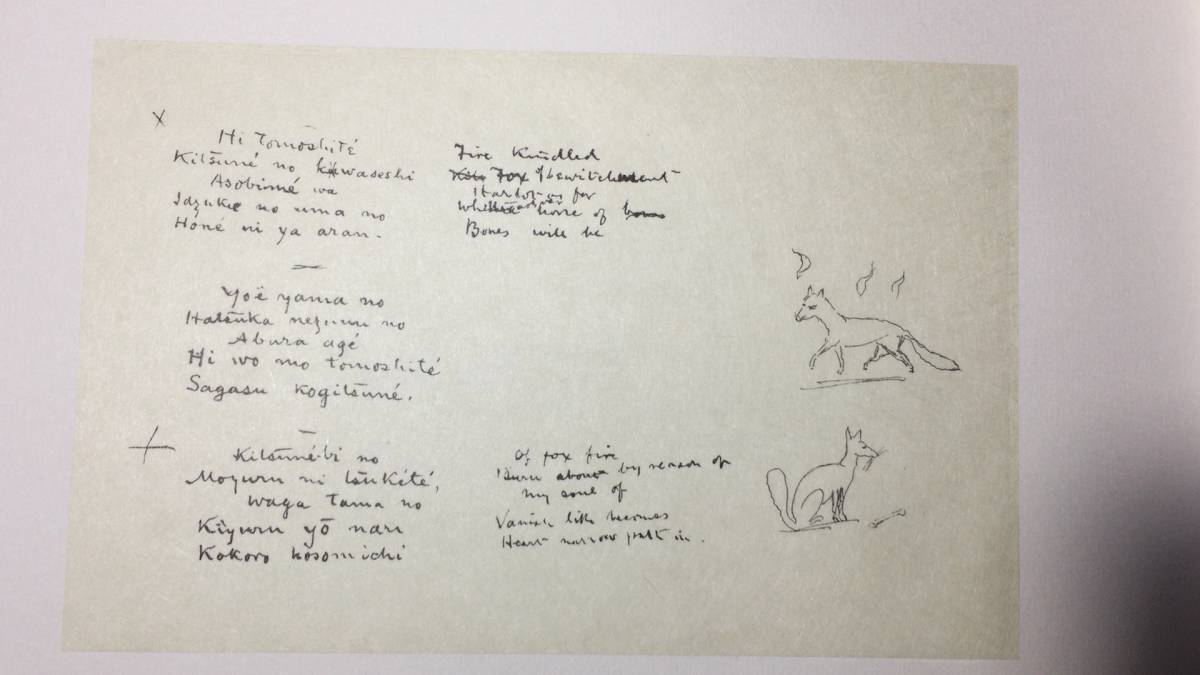 x
Hi tomoshité
Kitsuné no kawaseshi
Asobimé wa
Idzuke no uma no
Honé ni ya aran.
Fire Kindled
Fox bewitchment
for
horse of
Bones will be
Yoï yama no
Hatsuka nezumi no
Abura agé
Hi wo mo tomoshité
Sagasu kogitsuné.
Kitsuné-bi no
Moyuru ni tsukété,
Waga tama no
Kiyuru yō naru
Kokoro hosomichi
Of fox fire
Burn about by reason of
my soul of
Vanish like becomes
Heart narrow path in.